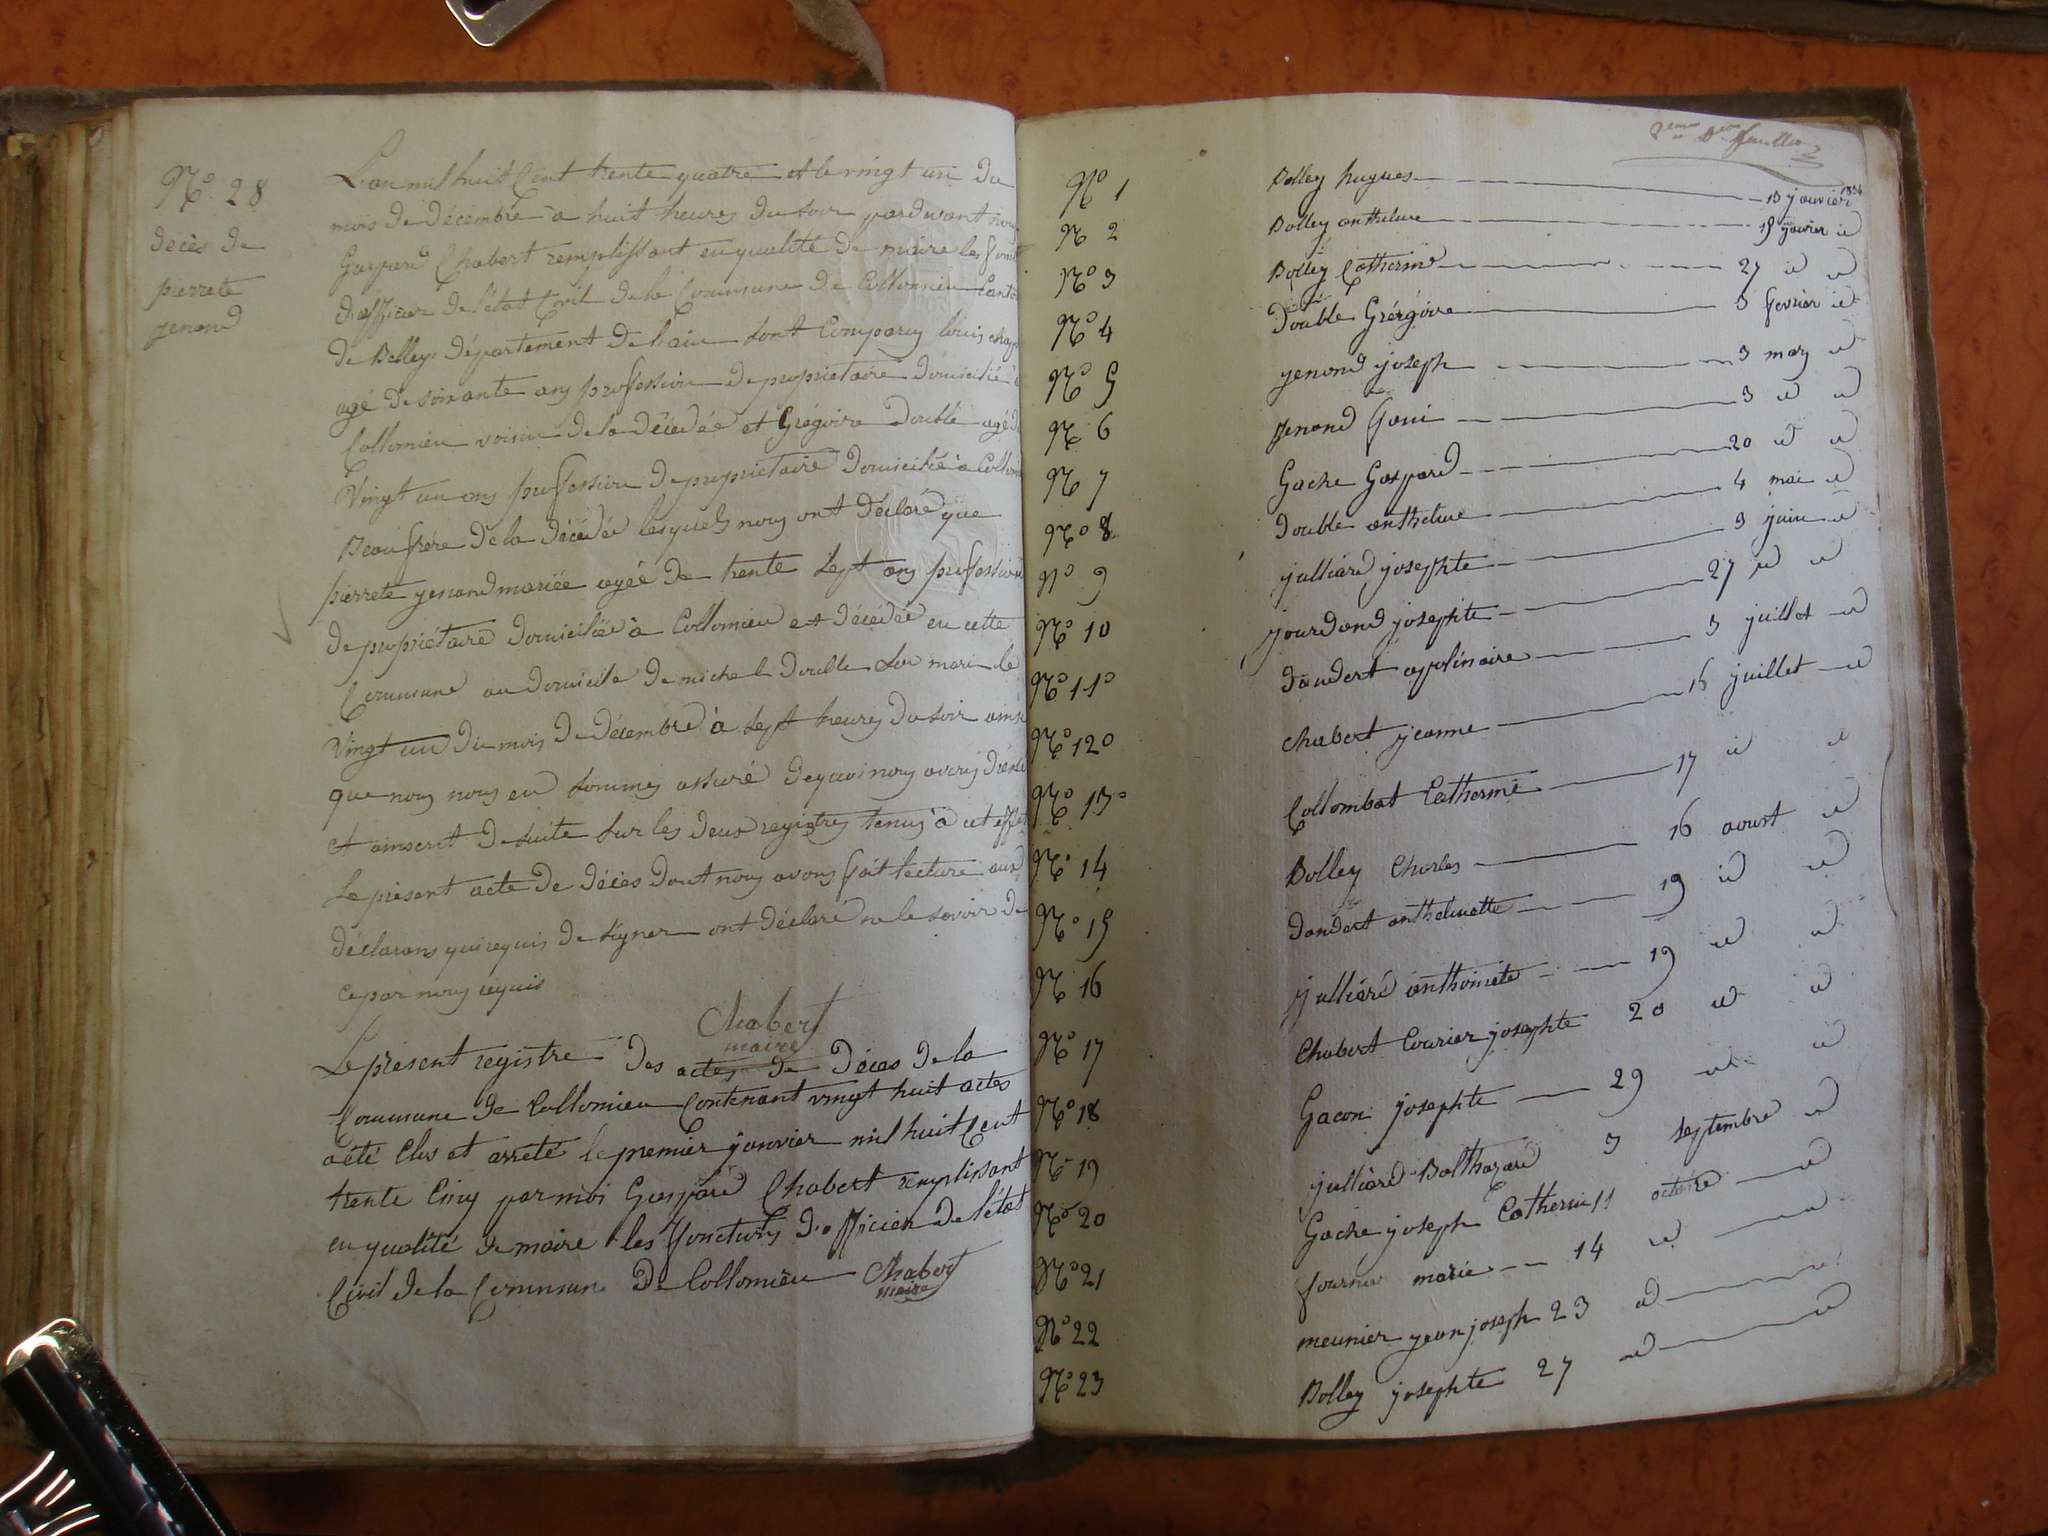 N° 28
décès de
pierrete
jenand
L'an mil huit Cent trente quatre et le vingt un du
mois de décembre à huit heures du soir pardevant nous
Gaspard Chabert remplissant en qualité de maire les fonct
d'officier de l'état Civil de la Commune de Collomieu Canto
de Belley département de l'ain sont Comparus louis
agé de soixante ans profession de propriétaire domicilié à
Collomieu voisin de la décedée et Grégoire double agé d
Vingt un ans profession de propriétaire domicilié à Collom
Beaufrere de la décédée lesquels nous ont déclaré que
pierrete jenand mariée agée de trente Sept ans profession
de propriétaire domiciliée à Collomieu est décédée en cette
Commune au domicile de michel double son mari le
Vingt un du mois de décembre à Sept heures du soir ainsi
que nous nous en sommes assuré de quoi nous avons
et ainscrit de suite sur les deux registres tenus à cet effet
Le présent acte de décès dont nous avons fait lecture aux
déclarans qui requis de signer ont déclaré ne le savoir de
ce par nous requis
Chabert
maire
Le présent registre des actes de décès de la
Commune de Collomieu Contenant vingt huit actes
a été Clos et arrêté le premier janvier mil huit Cent
trente Cinq par moi Gaspard Chabert remplissant
en qualité de maire les fonctions d'officier de l'état
Civil de la Commune de Collomieu Chabert
maire
N° 1 Bolley hugues 15 janvier 1834
N° 2 Bolley anthelme 19 janvier id
N° 3 Bolley Catherine 27 id id
N° 4 double Grégoire 3 fevrier id
N° 5 jenand joseph 3 mars id
N° 6 jenand 3 id id
N° 7 Gache Gaspard 20 id id
N° 8 double anthelme 4 mai id
N° 9 julliard josephte 3 juin id
N° 10 jourdand josephte 27 id id
N° 11° dandert apolinaire 3 juillet id
N° 12° chabert jeanne 16 juillet id
N° 13° Collombat Catherine 17 id id
N° 14 Bolley Charles 16 aoust id
N° 15 dandert anthelmette 19 id id
N° 16 julliard anthoinete 19 id id
N° 17 Chabert Courier josephte 20 id id
N° 18 Gacon josephte 29 id id
N° 19 julliard Balthazard 3 septembre id
N° 20 Gache joseph Catherin 11 octobre id
N° 21 fournier marie 14 id id
N° 22 meunier jean joseph 23 id id
N° 23 Bolley josephte 27 id id